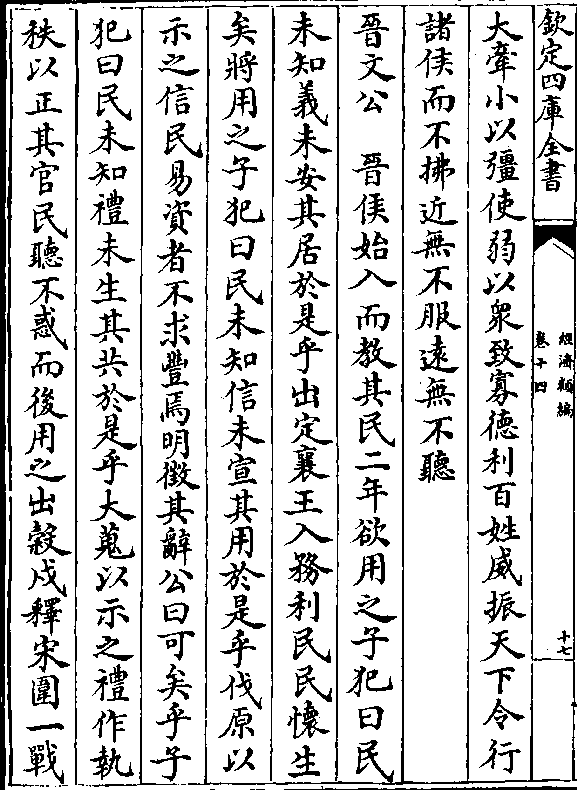 欽定四庫全書
經濟類編
卷十四
十七
大牽小以彊使弱以衆致寡德利百姓威振天下令行
諸侯而不拂近無不服遠無不聽
晉文公　晉侯始入而教其民二年欲用之子犯曰民
未知義未安其居於是乎出定襄王入務利民民懷生
矣將用之子犯曰民未知信未宣其用於是乎伐原以
示之信民易資者不求豐焉明徵其辭公曰可矣乎子
犯曰民未知禮未生其共於是乎大蒐以示之禮作執
秩以正其官民聽不惑而後用之出穀戍釋宋圍一戰